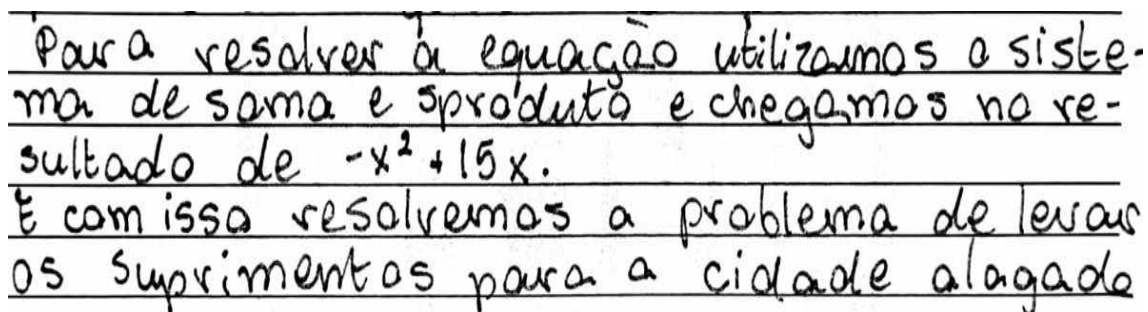 Para resolver a equação utilizamos o siste-
ma de soma e produto e chegamos no re-
sultado de -x² + 15x.
E com isso resolvemos o problema de levar
os suprimentos para a cidade alagada